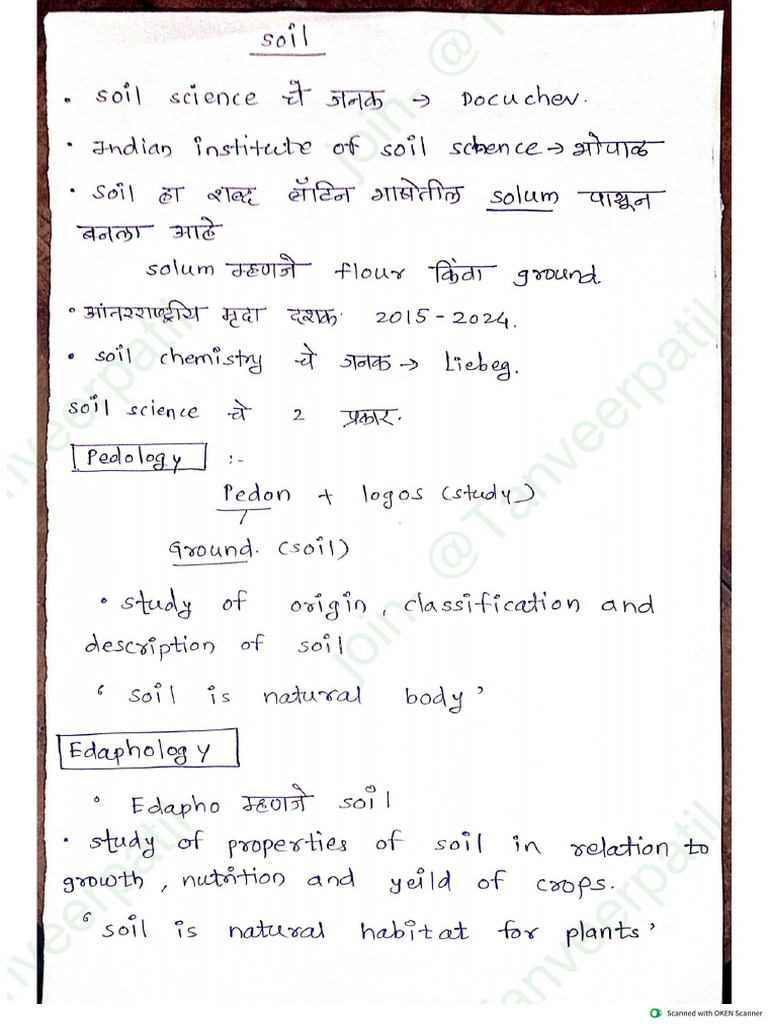 soil
• soil science चे जनक → Docuchev.
• Indian institute of soil science → भोपाळ
• soil हा शब्द लॅटिन भाषेतील solum पासून
बनला आहे
solum म्हणजे flour किंवा ground
• आंतरराष्ट्रीय मृदा दशक 2015 - 2024.
• soil chemistry चे जनक → Liebeg.
soil science चे 2 प्रकार.
Pedology :-
Pedon + logos (study)
Ground. (soil)
• study of origin, classification and
description of soil
‘ soil is natural body ’
Edaphology
• Edapho म्हणजे soil
• study of properties of soil in relation to
growth, nutrition and yeild of crops.
‘ soil is natural habitat for plants ’
join- @Tanveerpatil
Scanned with OKEN Scanner